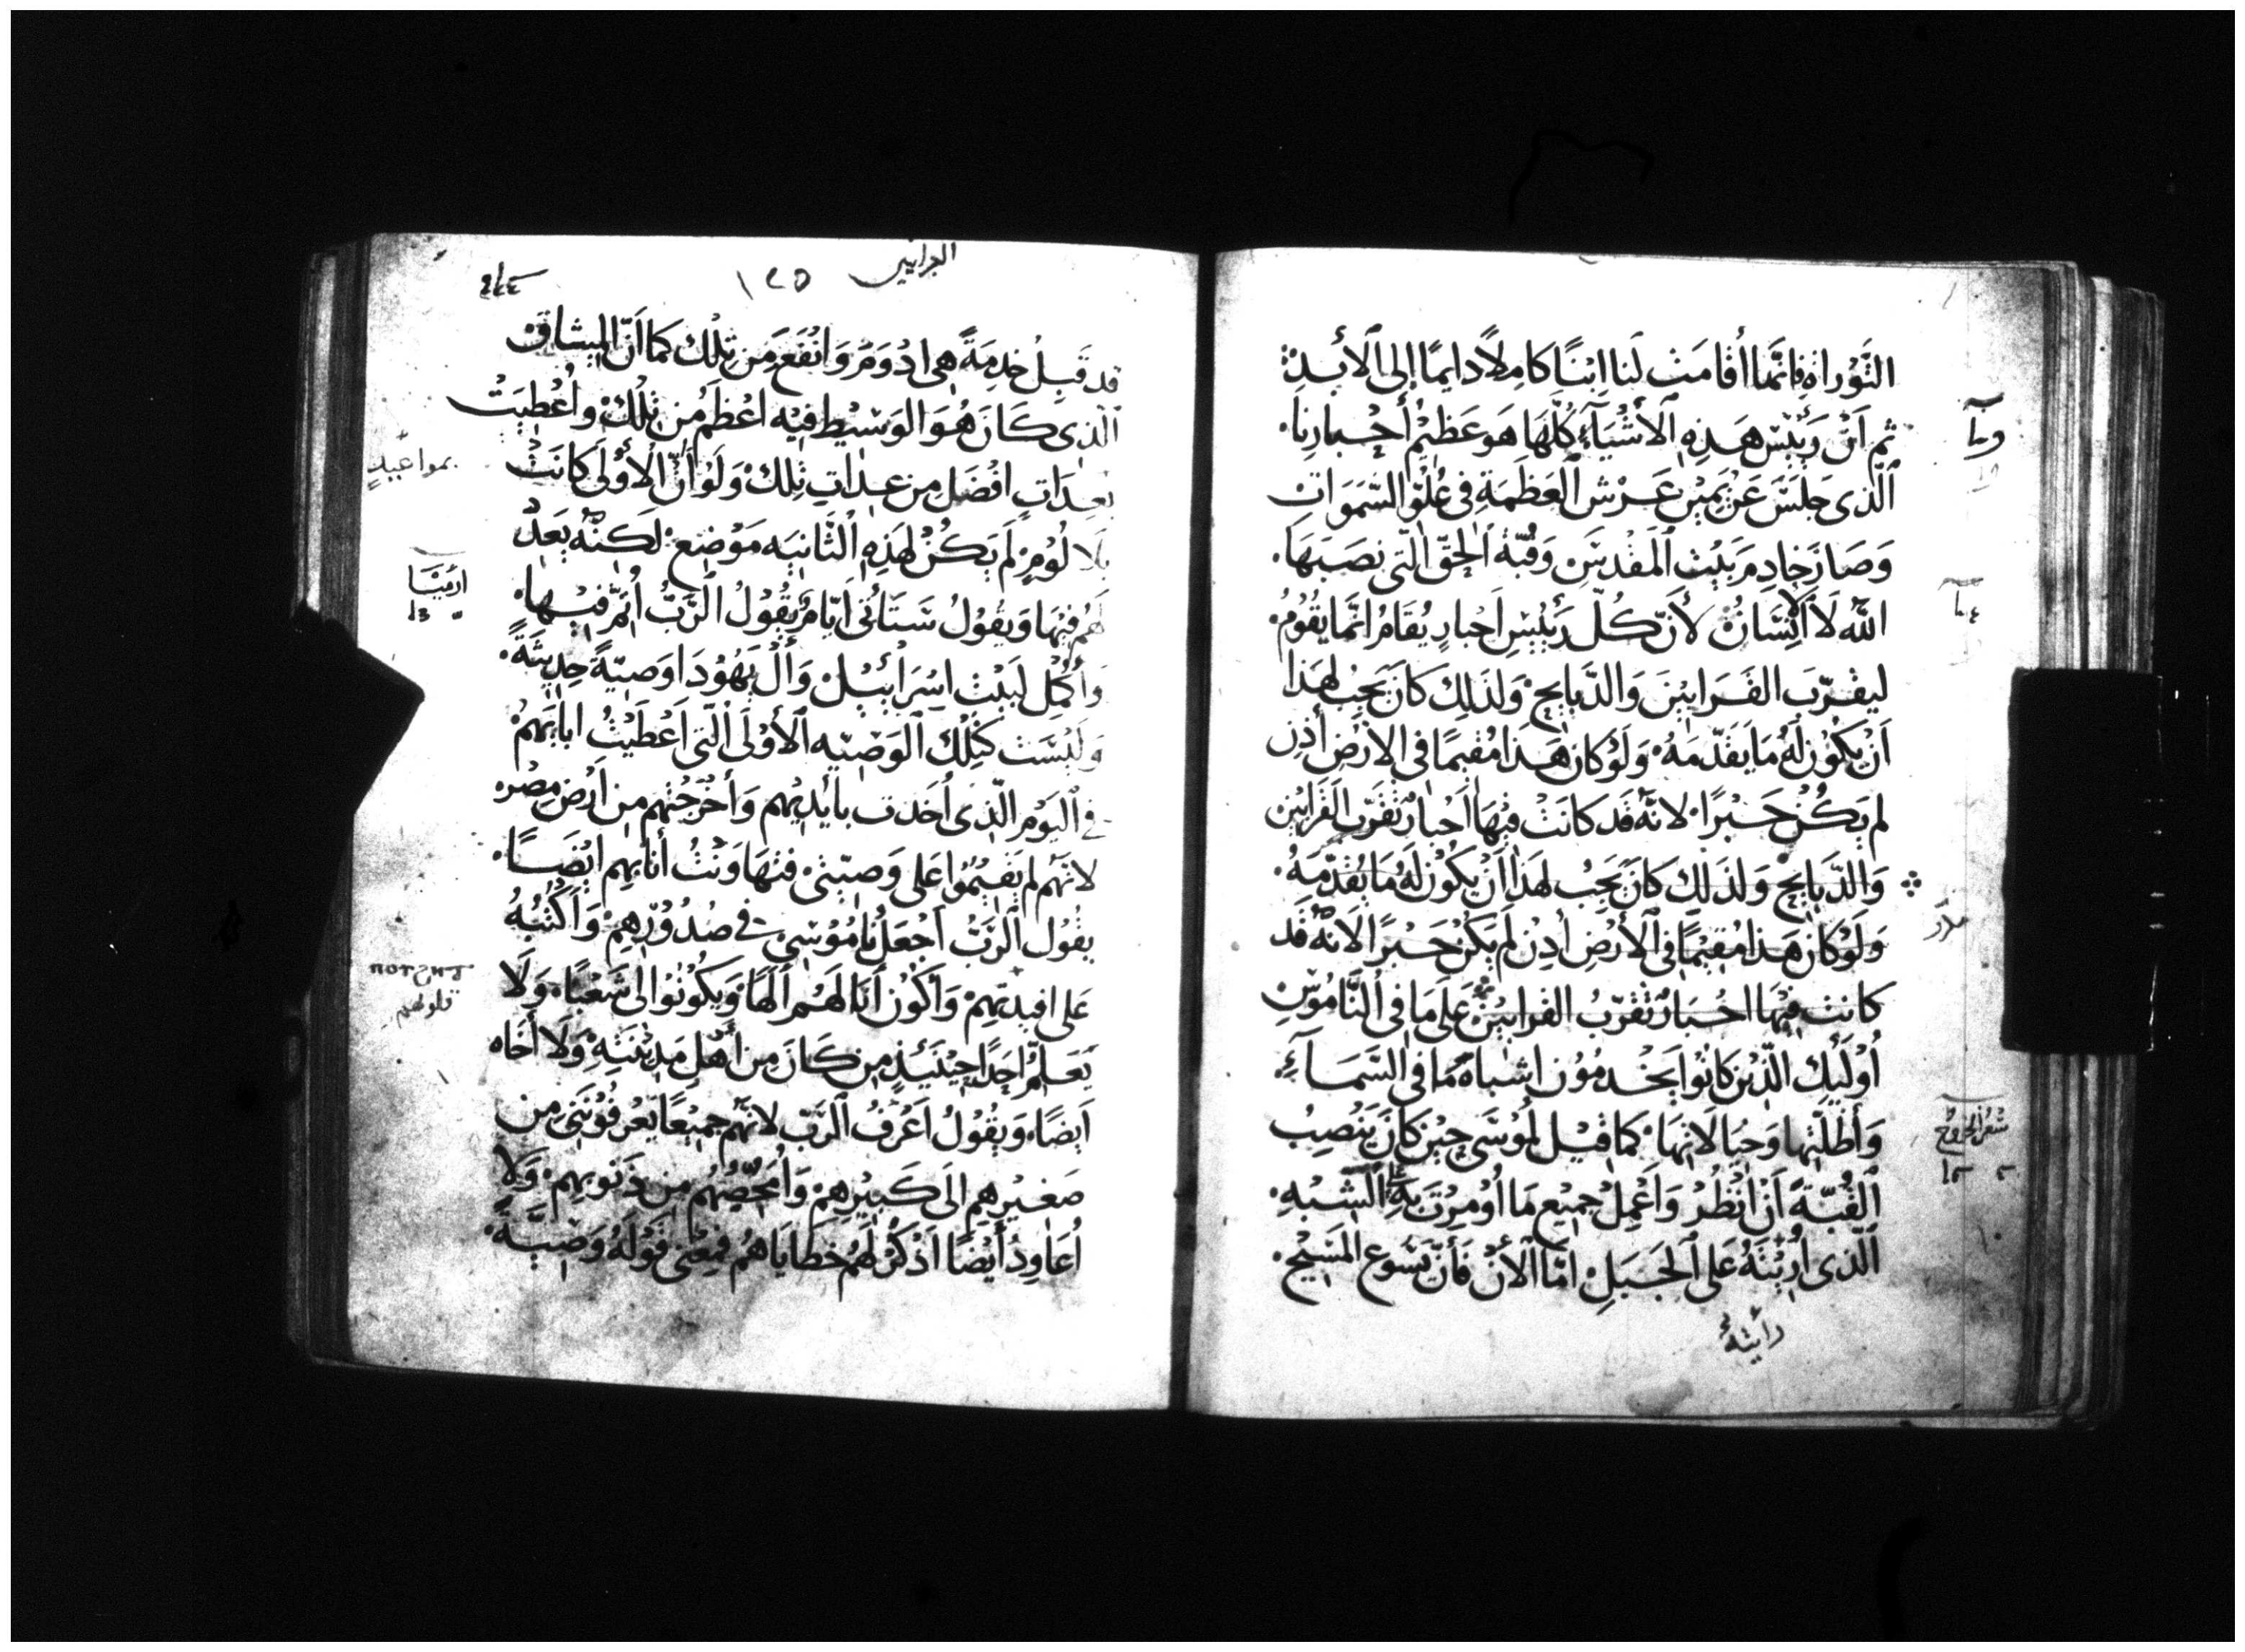 التَّوْرَاةِ فَاِنَّمَا أَقَامَتْ لَنَا اِبْنًا كَامِلاً دَايمًا إِلى الأَبَدِ
ثم اَنَّ رَئِيْسَ هَذِهِ الأَشْيَآءِ كُلّهَا هَو عَظِيْمُ أَحْبَارِنا
الَّذى جَلَسَ عَنْ يَمِيْنِ عَرْشِ العَظَمَةِ فِى عُلُوِّ السَّمَوَاتْ
وَصَارَ خَادِمَ بَيْتِ المَقْدِسِ وَقُبَّةِ الحَقّ الّتِى نَصَبَهَا
اللّٰه لَا الاِنْسَانُ لأَنّ كُلّ رَئِيْسِ اَحْبَارٍ يُقَامُ انَّمَا يَقُوْمُ
ليقرّبَ القَرَابِيْنَ وَالذَّبَايحِ وَلذَلِكَ كَانَ يَجِبُ لِهَذَا
اَنْ يَكُوْن لَهُ مَا يقَدّمَهُ وَلَوْ كانَ هَذا مُقيمًا فى الأرْض اُذِن
لم يَكُنْ حَبْرًا لانَّهُ قد كَانَتْ فِيْهَا اَحْبارٌ تُقَرّب القَرابِيْن
وَالذَّبَايِحْ وَلذَلِكَ كَانَ يَجِبُ لهَذا أنْ يَكُوْن لَهُ مَا يُقَدّمَهُ
وَلَوْ كَانَ هَذا مُقِيْمًا فِى الأَرْضِ اُذِنْ لَم يَكُنْ حَبْرًا لاَنهُ قَد
كَانت فِيْهَا احْبَارٌ تُقَرّبُ القرابيْن عَلَى مَا فِى النَّامُوْسِ
أُوْلَئِك الَّذِيْن كَانُوْا يَخْدمُوْن اشبَاهَ مَا فِى السَّمَآءِ
وَأَظلَّتهَا وَحيَالاتهَا كمَا قيْل لمُوْسَى حِيْن كَانَ يَنصِبُ
القُبّةَ اَنْ انْظُرْ وَاَعْمِلْ جميْع مَا اُوْمِرْتَ بِهِ عَلى الشبْهِ
الَّذى اُرِيْتَهُ عَلى الجَبَلِ امَّا الاَنْ فَأَنّ يَسُوع المَسِيْحِ
رأيتهُ
سفر الخروج
العبرانيين
١٢٥
قد قَبِلَ خدمَةً هِى ادْوَمُ وَانْفَعُ مِنْ تِلْك كَما اَنّ المِيثاقَ
الّذى كَانَ هُوَ الوَسِيْط فِيْه اعْظَمُ مِن تِلْكَ واُعْطِيَتْ
بعِدَاتٍ افْضَلِ مِن عِدَاتِ تِلكْ وَلَوْ أَنّ الأُوْلَى كَانَتْ
بلا لَوْمٍ لَم يَكُنْ لهَذِهِ الثَّانِيَه مَوْضِعْ لَكِنَّه بَعَدُ
لَهُم فِيْهَا وَيقُوْلُ سَتَأتِى اَيَّامٌ يَقُوْلُ الرّبُّ اُتِمّ فِيْها
وَأُكْمِل لبَيْت اسرَائِيْلْ وَأٓلْ يَهُوْدَا وَصيّةً حدِيثَةً
وَليْسَت كتِلْك الوَصِيّه الأُوْلَى الّتِى اَعْطَيْتُ ابايَهُمْ
فى اليَوْم الّذِى أخَذت بايْدِيْهِم وَاَخْرَجْتهم من اَرْضِ مِصْر
لانَهُم لم يَقِيْمُوْا عَلى وَصيَّتِى فتهَاوَنْتُ أنَا بهِم ايْضًا
يقُوْل الرَّبُّ اَجْعَلُ نَامُوْسِى فى صُدُوْرِهِمْ وَاَكْتُبُهُ
عَلى افيدتهِمْ وَاَكُوْن اَنَا لَهُم الَهًا وَيَكُوْنُوْا لى شَعْبًا وَلَا
يَعَلِّمُ اَحدًا حِيْنَئِذٍ مِن كَانَ مِن أَهْلِ مَدِيْنَتِهْ وَلا أَخَاه
اَيضًا وَيقُوْلُ اَعْرِفُ الرّبّ لانهم جَمِيْعًا يَعْرفُوْنَنى من
صَغِيْرِهِم الَى كَبِيْرِهِمْ وَأُمَحِّصُهُم مِن ذنوبِهِمْ وَلَا
اُعَاوِدُ أيْضًا اذْكُرُ لَهُمْ خَطَايَاهُمْ فمعْنى قَوْلَهُ وَصِيَّةً
بمواعيدٍ
ارميا
قلوبهم